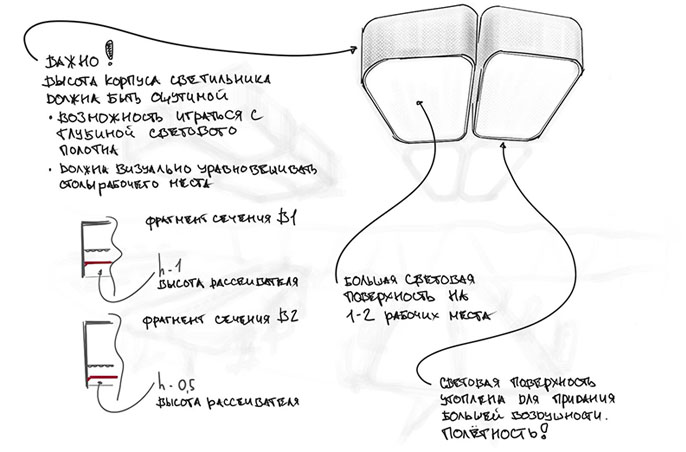 ВАЖНО!
ВЫСОТА КОРПУСА СВЕТИЛЬНИКА
ДОЛЖНА БЫТЬ ОЩУТИМОЙ
• ВОЗМОЖНОСТЬ ИГРАТЬСЯ С
ГЛУБИНОЙ СВЕТОВОГО
ПОЛОТНА
• ДОЛЖНА ВИЗУАЛЬНО УРАВНОВЕШИВАТЬ
СТОЛЫ РАБОЧЕГО МЕСТА
ФРАГМЕНТ СЕЧЕНИЯ В1
h-1
ВЫСОТА РАССЕИВАТЕЛЯ
ФРАГМЕНТ СЕЧЕНИЯ В2
h-0,5
ВЫСОТА РАССЕИВАТЕЛЯ
БОЛЬШАЯ СВЕТОВАЯ
ПОВЕРХНОСТЬ НА
1-2 РАБОЧИХ МЕСТА
СВЕТОВАЯ ПОВЕРХНОСТЬ
УТОПЛЕНА ДЛЯ ПРИДАНИЯ
БОЛЬШЕЙ ВОЗДУШНОСТИ.
ПОЛЁТНОСТЬ!